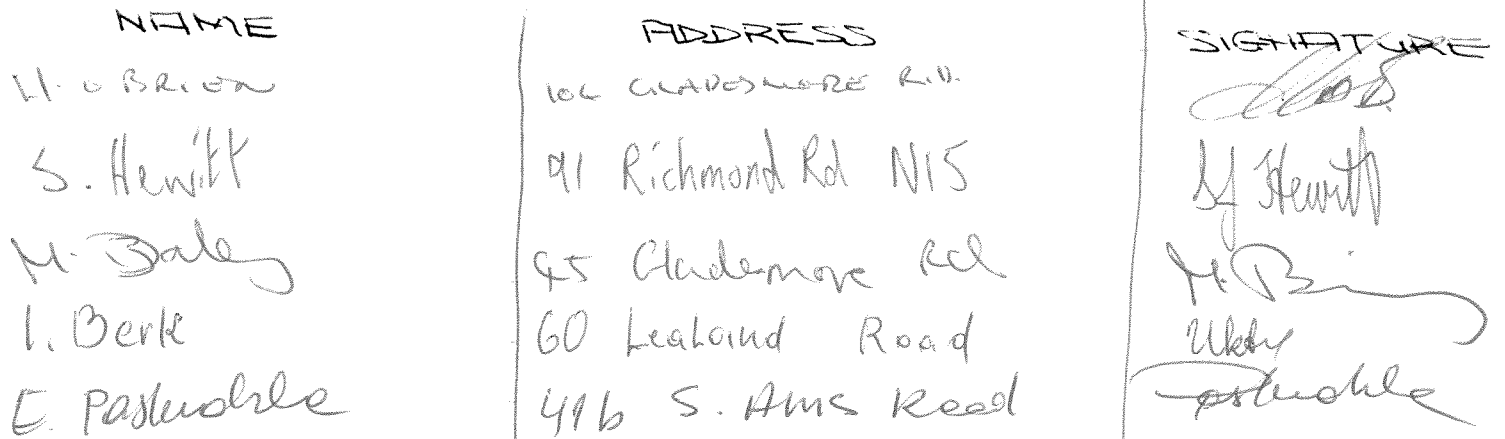 NAME ADDRESS SIGNATURE
H. O BRIEN 104 GLADESMORE RD.
S. Hewitt 91 Richmond Rd N15 SJ Hewitt
M. Daley 45 Glademore Rd M.
I. Berk 60 Lealand Road
E. 41b S. Ams Road